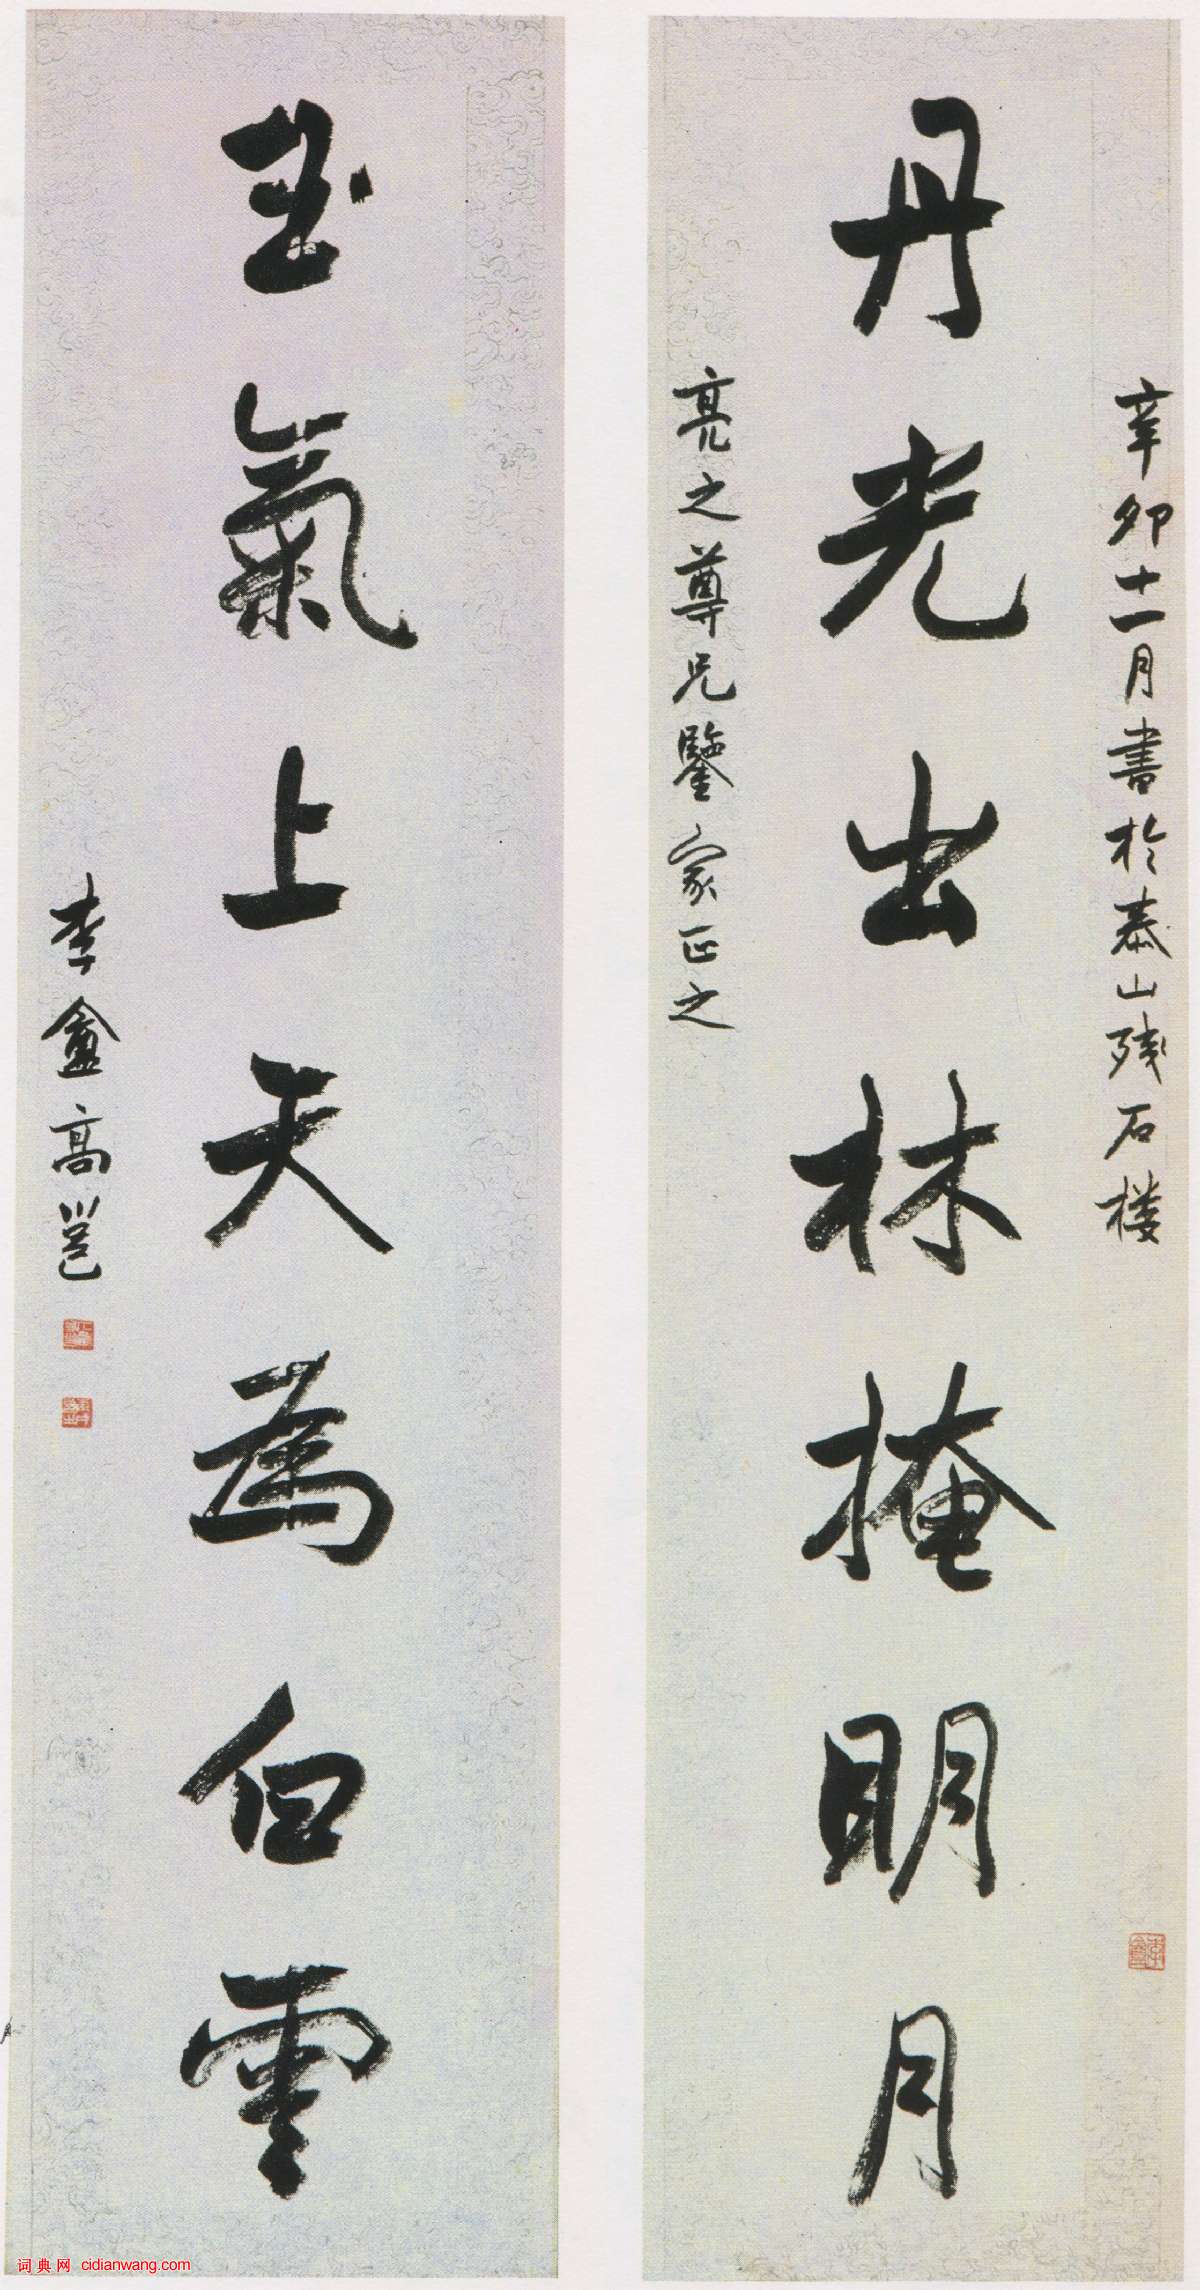 辛卯十一月書於泰山残石楼
丹光出林掩明月
亮之尊兄鑒家正之
玉氣上天為白雲
李盦高邕
词典网 cidianwang.com